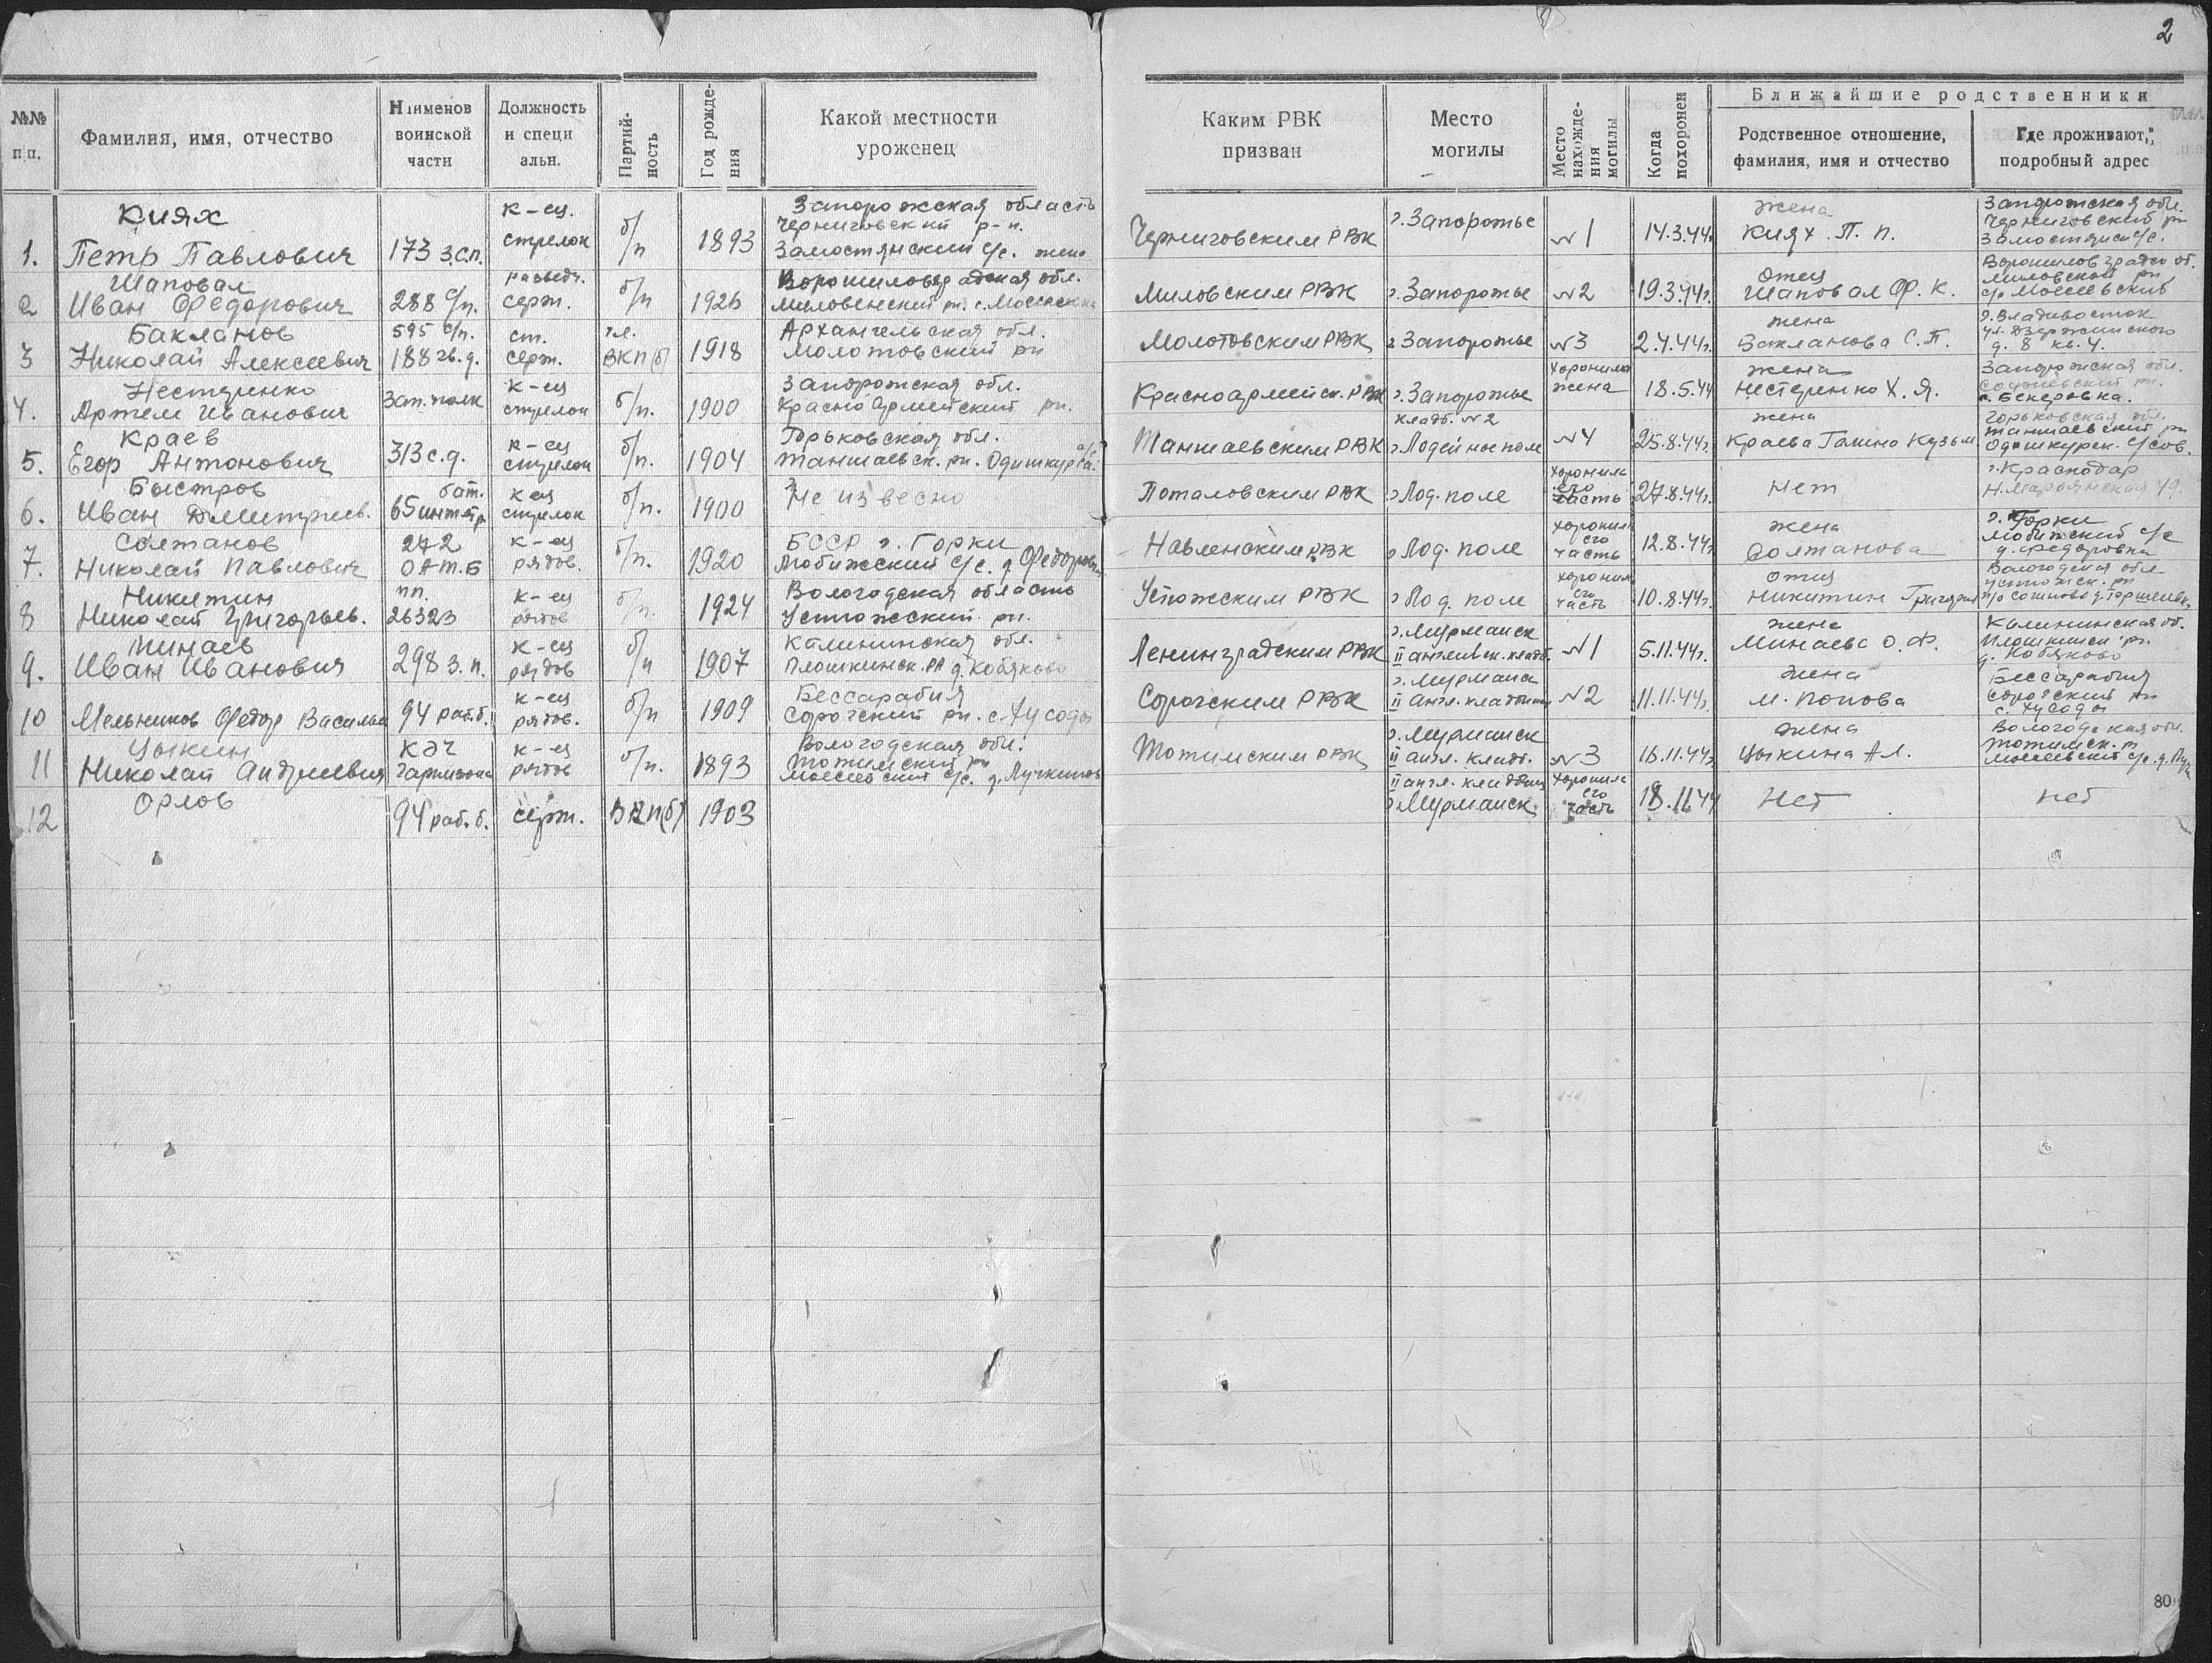 2
№№ п.п.
Фамилия, имя, отчество
Наименов воинской части
Должность и специ альн.
Партий-ность
Год рожде-ния
Какой местности уроженец
Каким РВК призван
Место могилы
Место нахожде-ния могилы
Когда похоронен
Ближайшие родственники
Родственное отношение, фамилия, имя и отчество
Где проживают, подробный адрес
1. Киях Петр Павлович 173 з.с.п. к-ец. стрелок б/п 1893 Запорожская область Черниговский р-н. Замостянский с/с. Черниговским РВК г. Запорожье №1 14.3.44г. жена Киях. П. П. Запорожская обл. Черниговский рн Замостянск с/с.
2 Шаповал Иван Федорович 288 с/п. разведч. серж. б/п 1926 Ворошиловградская обл. Миловским РВК г. Запорожье №2 19.3.44г. отец Шаповал Ф. К. Ворошиловградск об. Миловской рн
3 Бакланов Николай Алексеевич 595 с/п. 188 гв. д. ст. серж. чл. ВКП(б) 1918 Архангельская обл. Молотовский рн Молотовским РВК г Запорожье №3 2.4.44г. жена Бакланова С. П. г. Владивосток ул. Дзержинского д. 8 кв. 4.
4. Нестеренко Артем Иванович Зап. полк к-ец стрелок б/п. 1900 Запорожская обл. Красноармейский рн. Красноармейск. РВК г. Запорожье кладб. №2 хоронила жена 18.5.44 жена Нестеренко Х. Я. Запорожская обл.
5. Краев Егор Антонович 313 с.д. к-ец стрелок б/п. 1904 Горьковская обл. Таншаевск. рн. Таншаевским РВК г. Лодейное поле №4 25.8.44г. жена Краева Галина Кузьм. Горьковская обл. Таншаевский рн
6. Быстров Иван Дмитриев. бат. 65 к ец стрелок б/п. 1900 Не извесно Поталовским РВК г Лод. поле хоронила его часть 27.8.44г. Нет г. Краснодар
7. Солтанов Николай Павлович 272 к-ец рядов. б/п. 1920 БССР г. Горки Любижский с/с. д Федоровка РВК г Лод. поле хоронил его часть 12.8.44г. жена Солтанова г. Горки Любижский с/с д. Федоровка
8 Никитин Николай Григорьев. пп. 26323 к-ец рядов б/п. 1924 Вологодская область Устюжский. рн. Устюжским РВК г Лод. поле хоронил его часть 10.8.44г. отец Никитин Вологодская обл Устюжск. рн
9. Минаев Иван Иванович 298 з. п. к-ец рядов б/п 1907 Калининская обл. д. Кобяково Ленинградским РВК г. Мурманск №1 5.11.44г. жена Минаева О. Ф. Калининская об. д. Кобяково
10 Мельников Федор Василь 94 раб. б. к-ец рядов. б/п 1909 Бессарабия Сорочский рн. Сорочским РВК г. Мурманск №2 11.11.44г. жена М. Попова Бессарабия Сорочский рн
11 Цыкин Николай Андреевич КЭЧ гарнизона к-ец рядов б/п. 1893 Вологодская обл. Тотимский рн Моссеевский с/с. Тотимским РВК г. Мурманск II англ. кладб. №3 16.11.44г. жена Цыкина А.Л. Вологодская обл. Тотимск. р
12 Орлов 94 раб. б. серж. ВКП(б) 1903 II англ. кладбищ г. Мурманск хоронила его часть 18.11.44 Нет нет
80